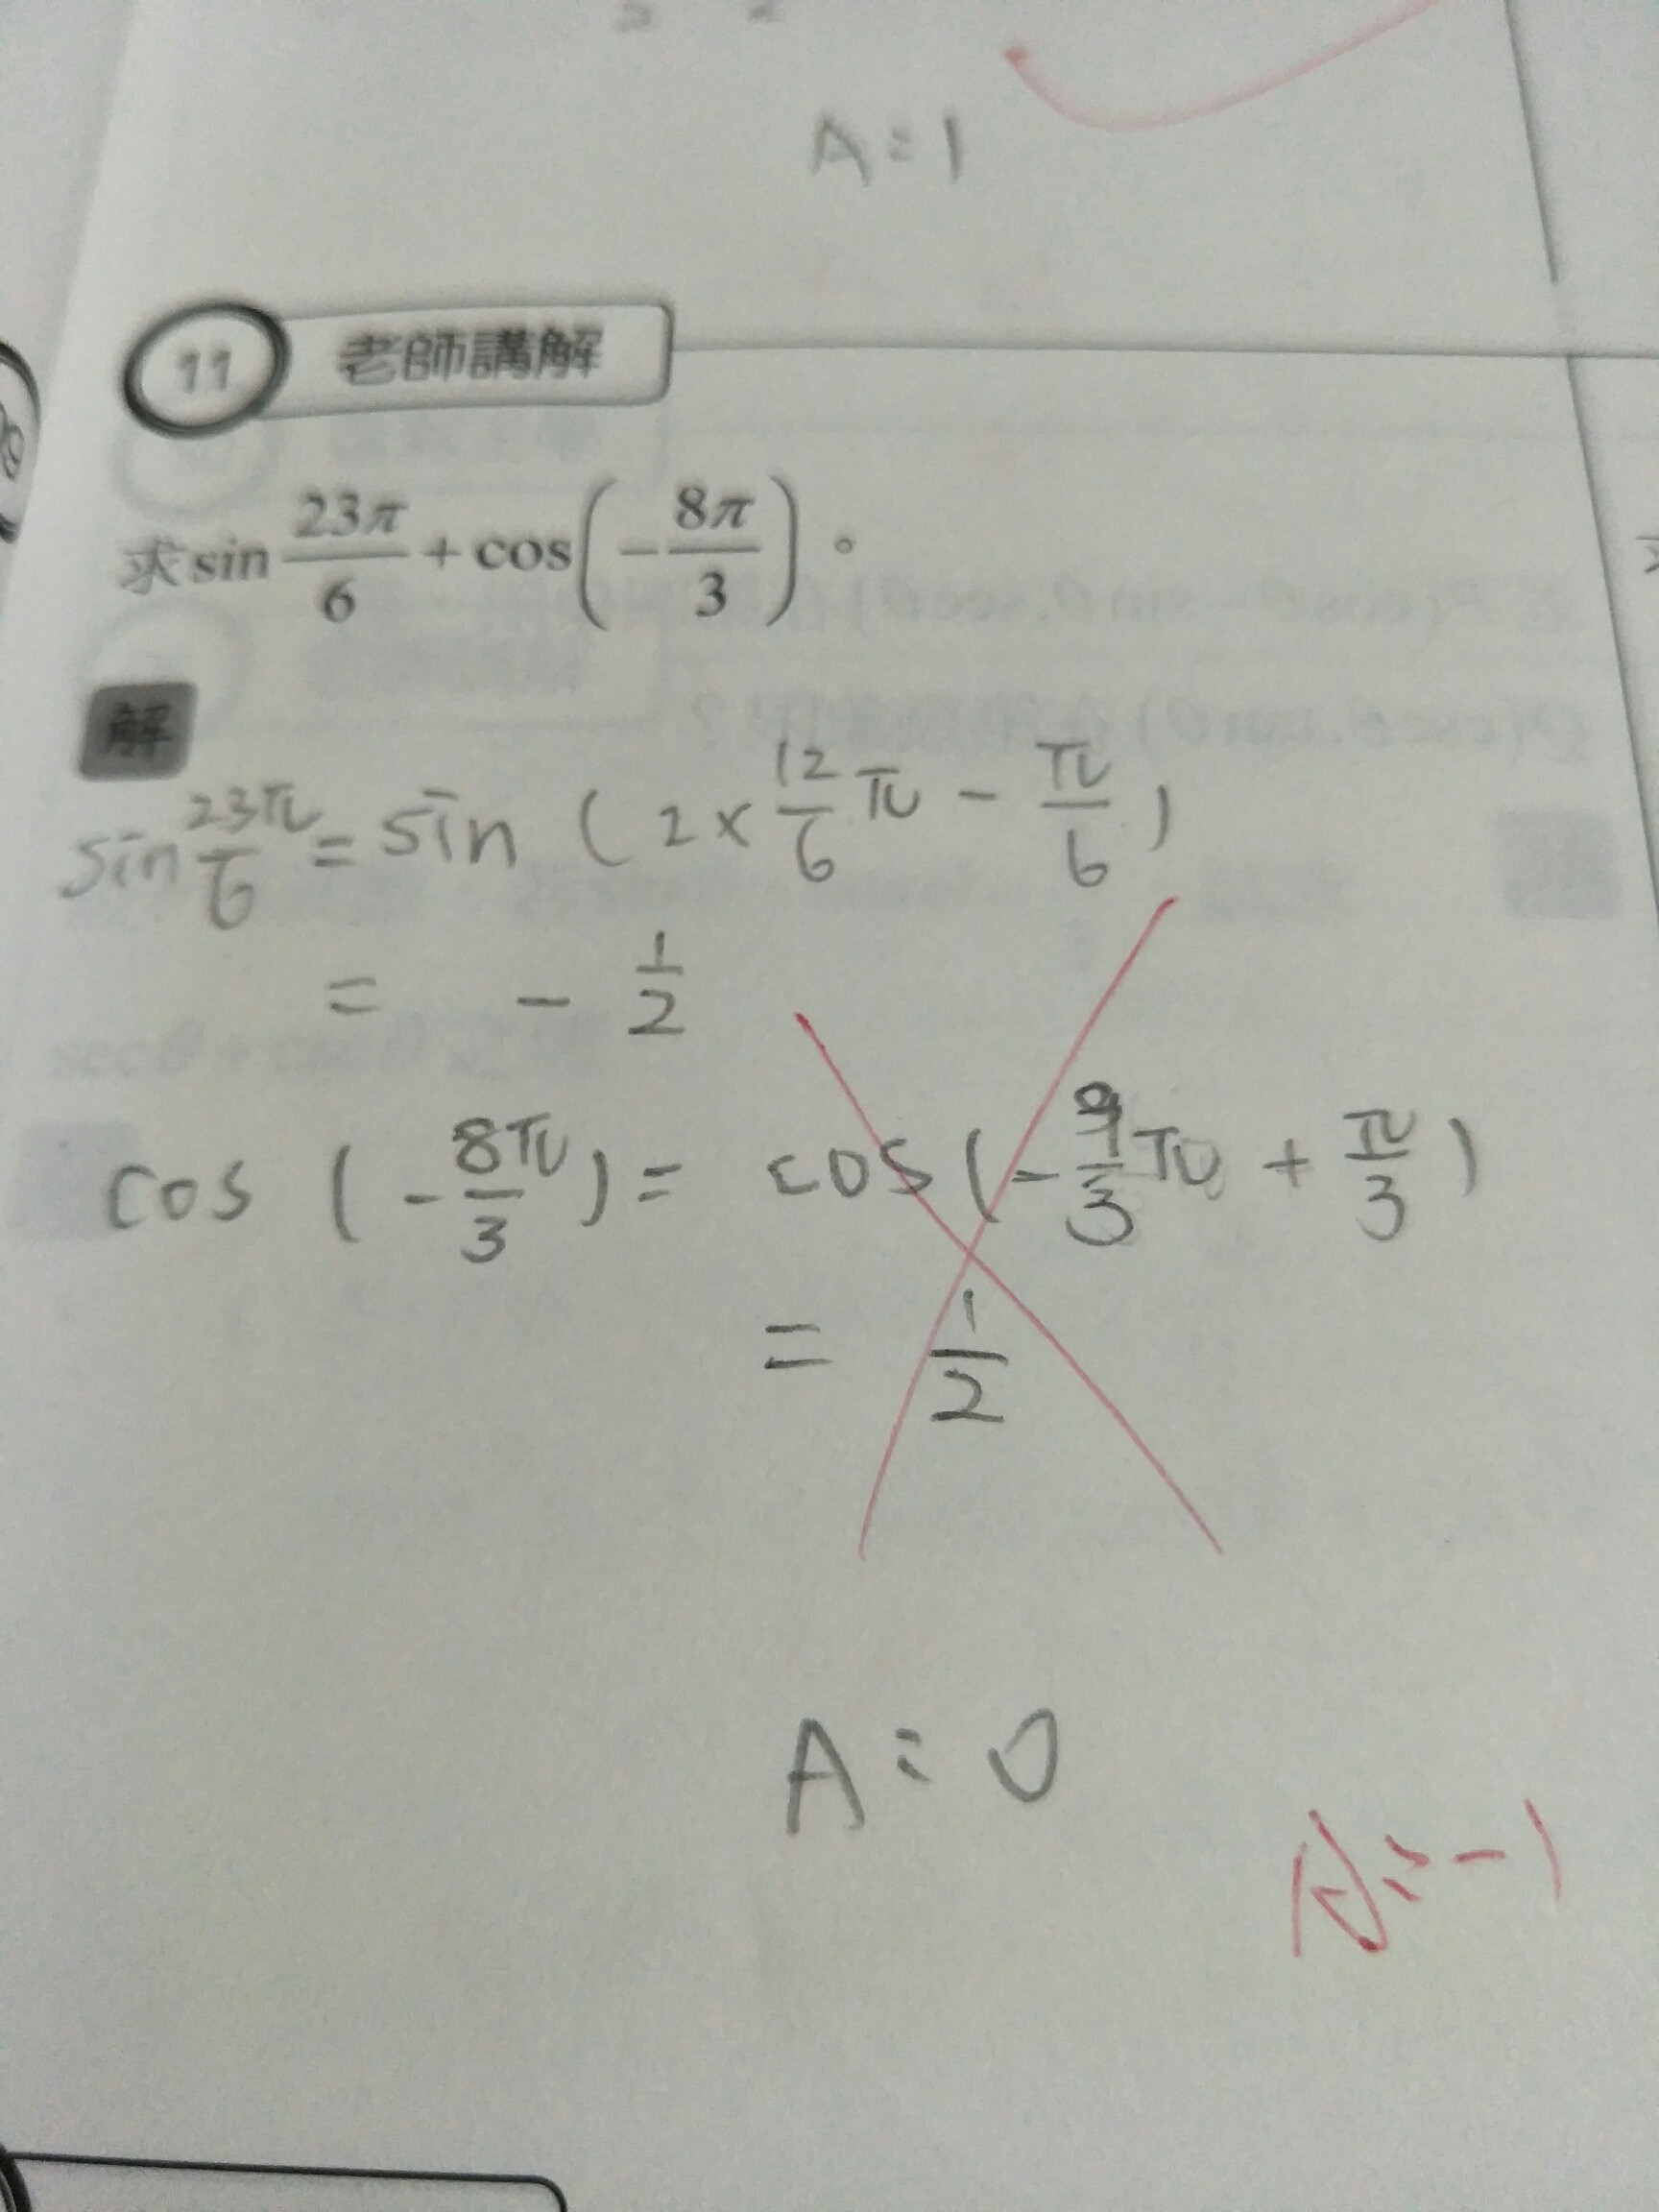 A = 1
11 老師講解
求 sin 23π/6 + cos(-8π/3)。
解
sin 23π/6 = sin (2 × 12/6 π - π/6)
= - 1/2
cos (-8π/3) = cos (-9/3 π + π/3)
= 1/2
A = 0
A: -1